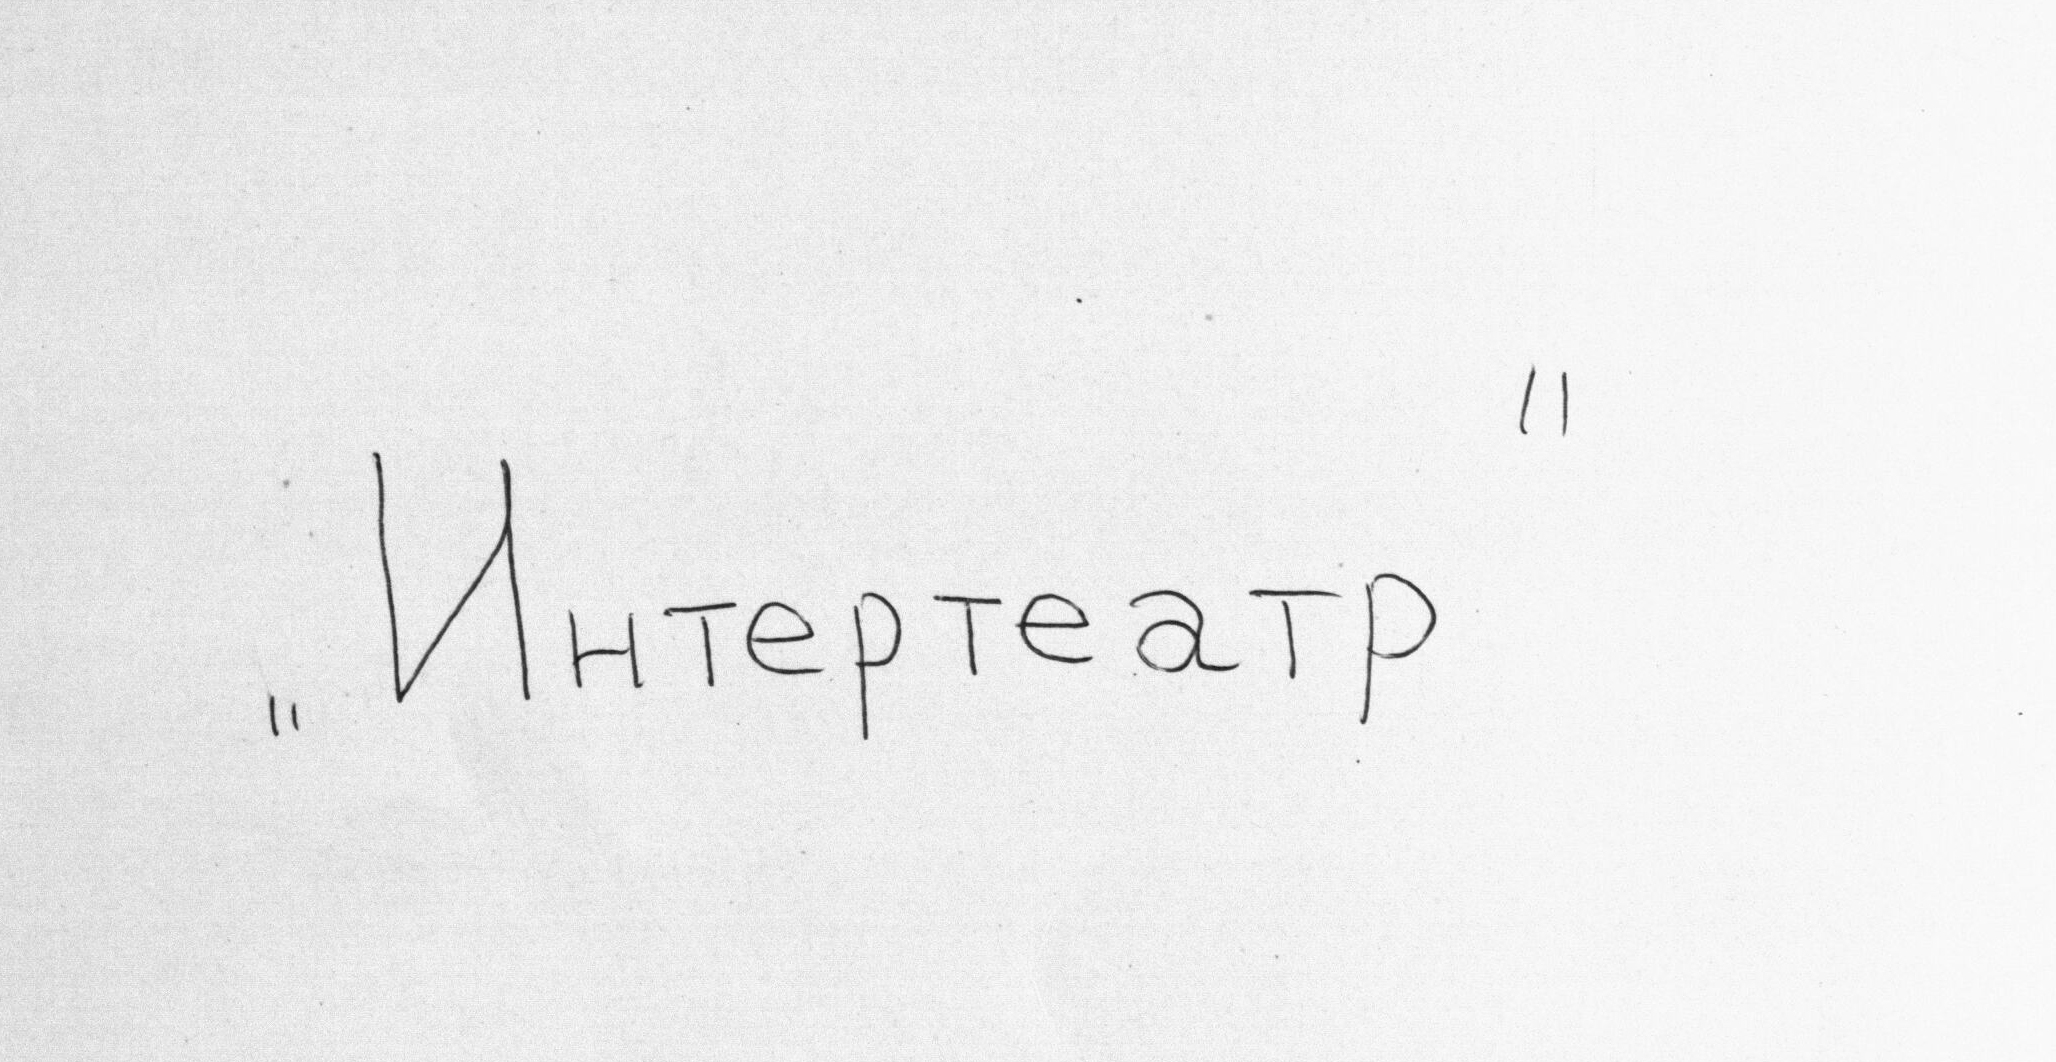 „Интертеатр"